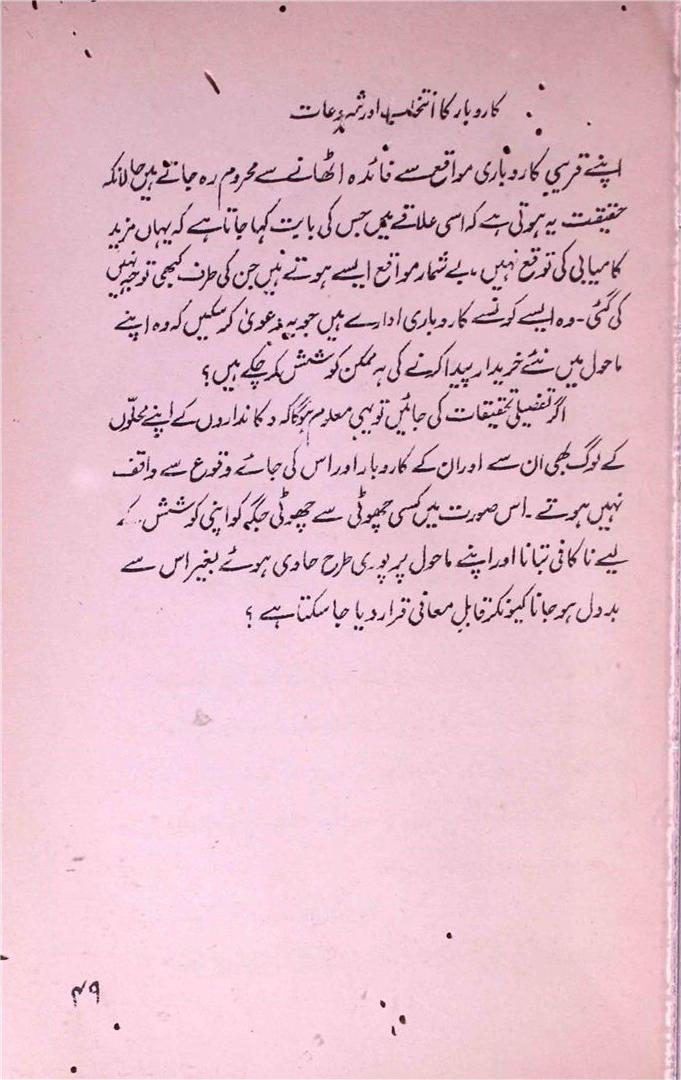 کاروبار کا انتخاب اور شروعات
اپنے قریبی کاروباری مواقع سے فائدہ اٹھانے سے محروم رہ جاتے ہیں حالانکہ
حقیقت یہ ہوتی ہے کہ اسی علاقے میں جس کی بابت کہا جاتا ہے کہ یہاں مزید
کامیابی کی توقع نہیں، بے شمار مواقع ایسے ہوتے ہیں جن کی طرف کبھی توجہ نہیں
کی گئی۔ وہ ایسے کونسے کاروباری ادارے ہیں جو یہ دعویٰ کر سکیں کہ وہ اپنے
ماحول میں نئے خریدار پیدا کرنے کی ہر ممکن کوشش کر چکے ہیں؟
اگر تفصیلی تحقیقات کی جائیں تو یہی معلوم ہوگا کہ دکانداروں کے اپنے محلّوں
کے لوگ بھی ان سے اور ان کے کاروبار اور اس کی جائے وقوع سے واقف
نہیں ہوتے۔ اس صورت میں کسی چھوٹی سے چھوٹی جگہ کو اپنی کوشش کے
لیے ناکافی بتانا اور اپنے ماحول پر پوری طرح حاوی ہوئے بغیر اس سے
بددل ہو جانا کیونکر قابلِ معافی قرار دیا جا سکتا ہے؟
۴۹